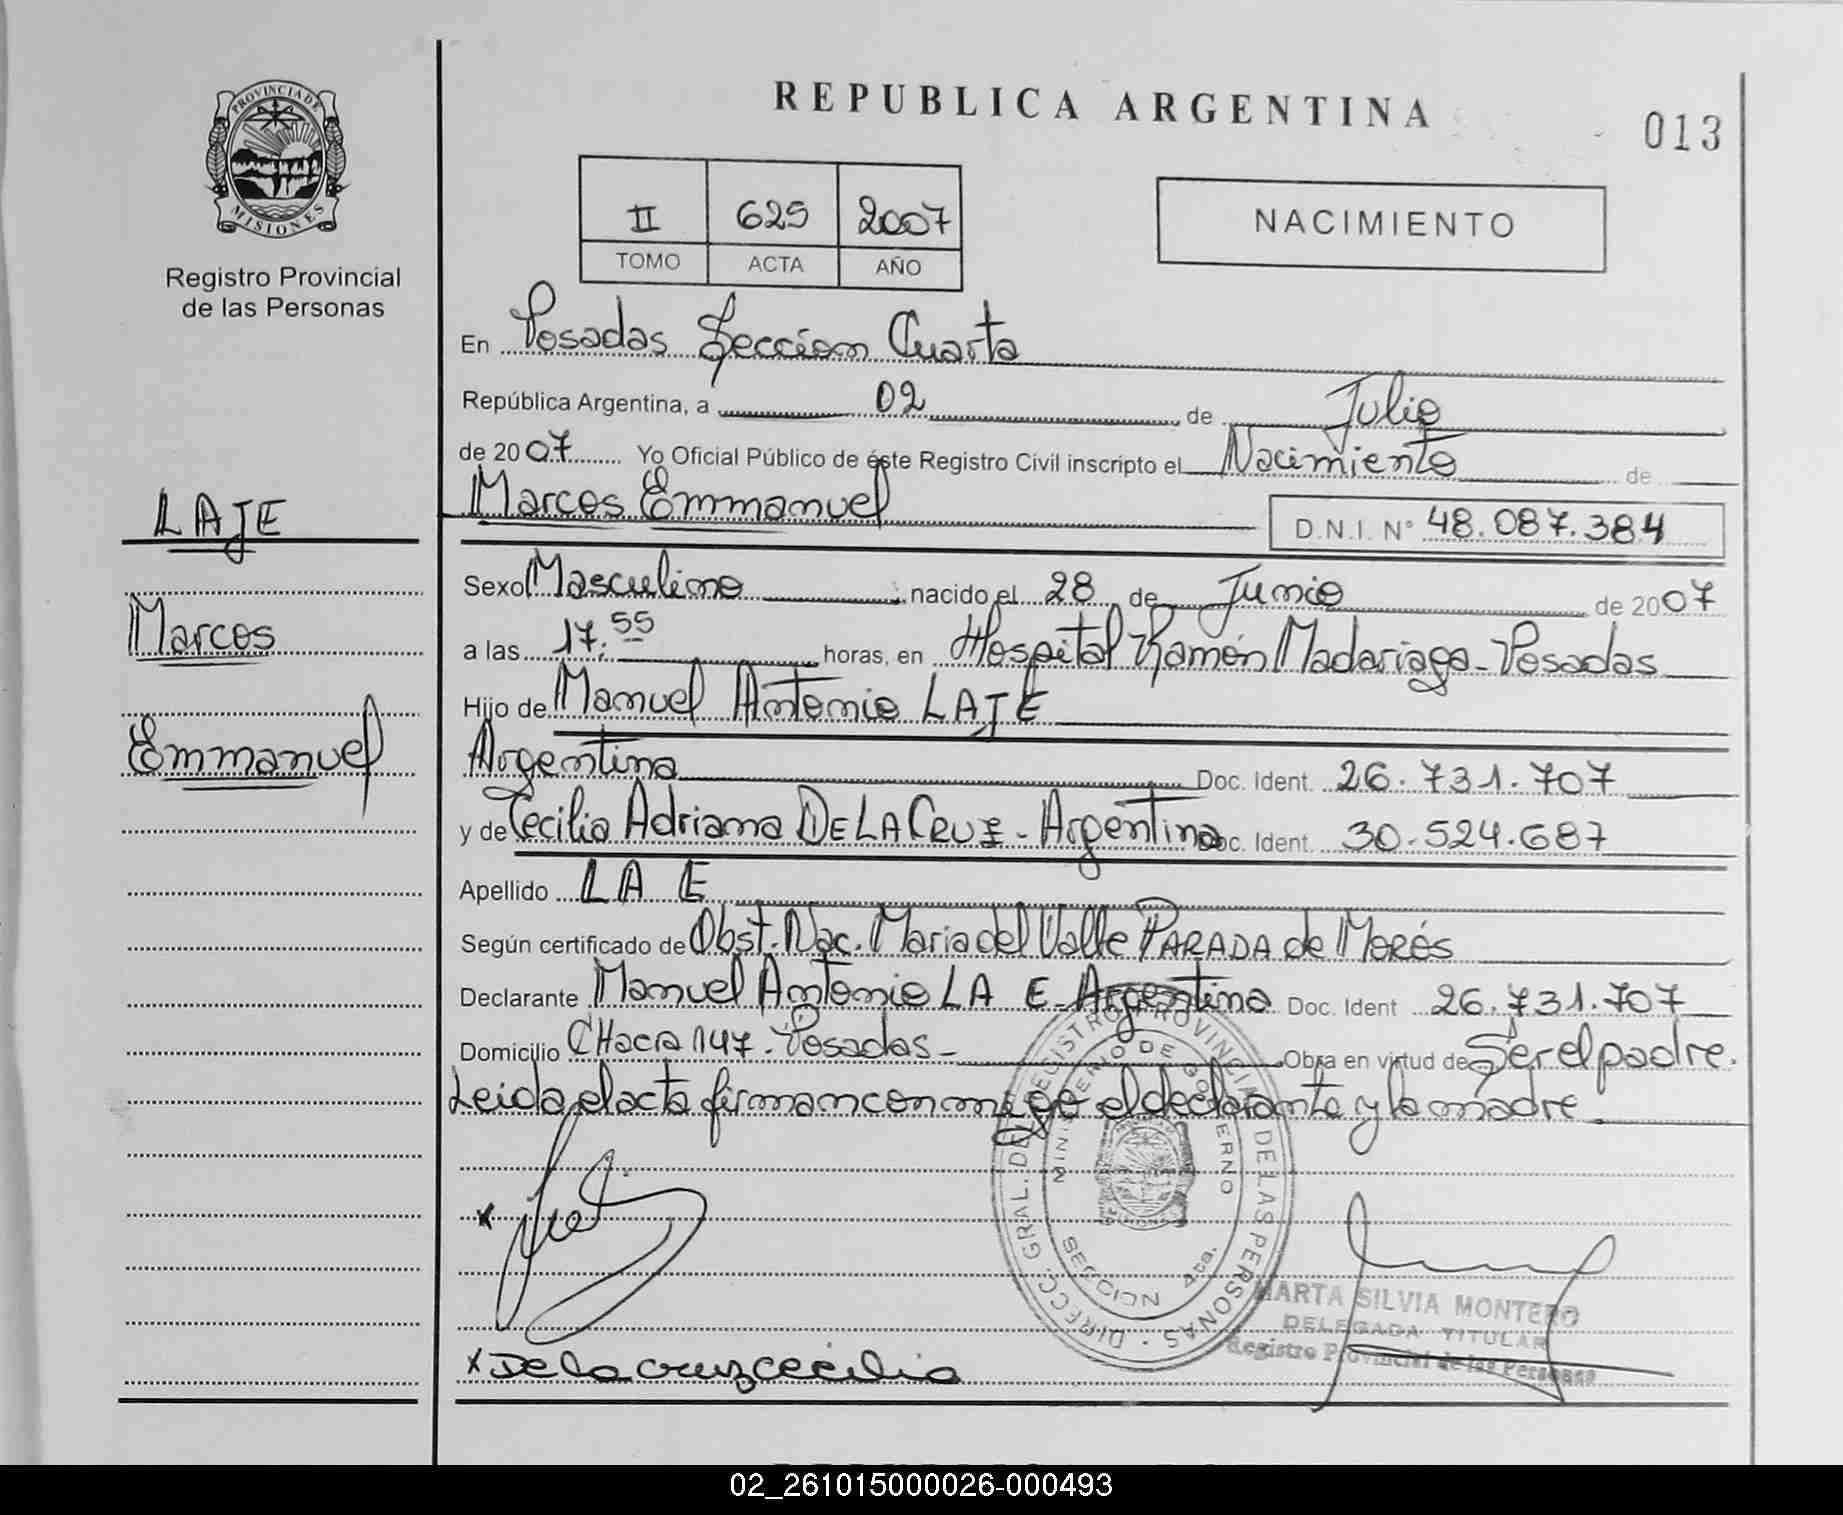 REPUBLICA ARGENTINA
013
PROVINCIA DE
MISIONES
Registro Provincial
de las Personas
II 625 2007
TOMO ACTA AÑO
NACIMIENTO
En Posadas Seccion Cuarta
República Argentina, a 02 de Julio
de 2007 Yo Oficial Público de éste Registro Civil inscripto el Nacimiento de
Marcos Emmanuel D.N.I. N° 48.087.384
LAJE
Marcos
Emmanuel
Sexo Masculino nacido el 28 de Junio de 2007
a las 17:55 horas, en Hospital Ramón Madariaga - Posadas
Hijo de Manuel Antonio LAJE
Argentina Doc. Ident. 26.731.707
y de Cecilia Adriana DE LA CRUZ - Argentina Doc. Ident. 30.524.687
Apellido LA E
Según certificado de Obst. Nac. Maria del Valle PARADA de MORÉS
Declarante Manuel Antonio LA E - Argentina Doc. Ident 26.731.707
Domicilio CHacra 147 - Posadas - Obra en virtud de Ser el padre.
Leida el acta firman conmigo el declarante y la madre
x
x De la cruz cecilia
DIRECC. GRAL. DEL REGISTRO PROVINCIAL DE LAS PERSONAS
MINISTERIO DE GOBIERNO
SECCION 4ta.
MARTA SILVIA MONTERO
DELEGADA TITULAR
Registro Provincial de las Personas
02_261015000026-000493